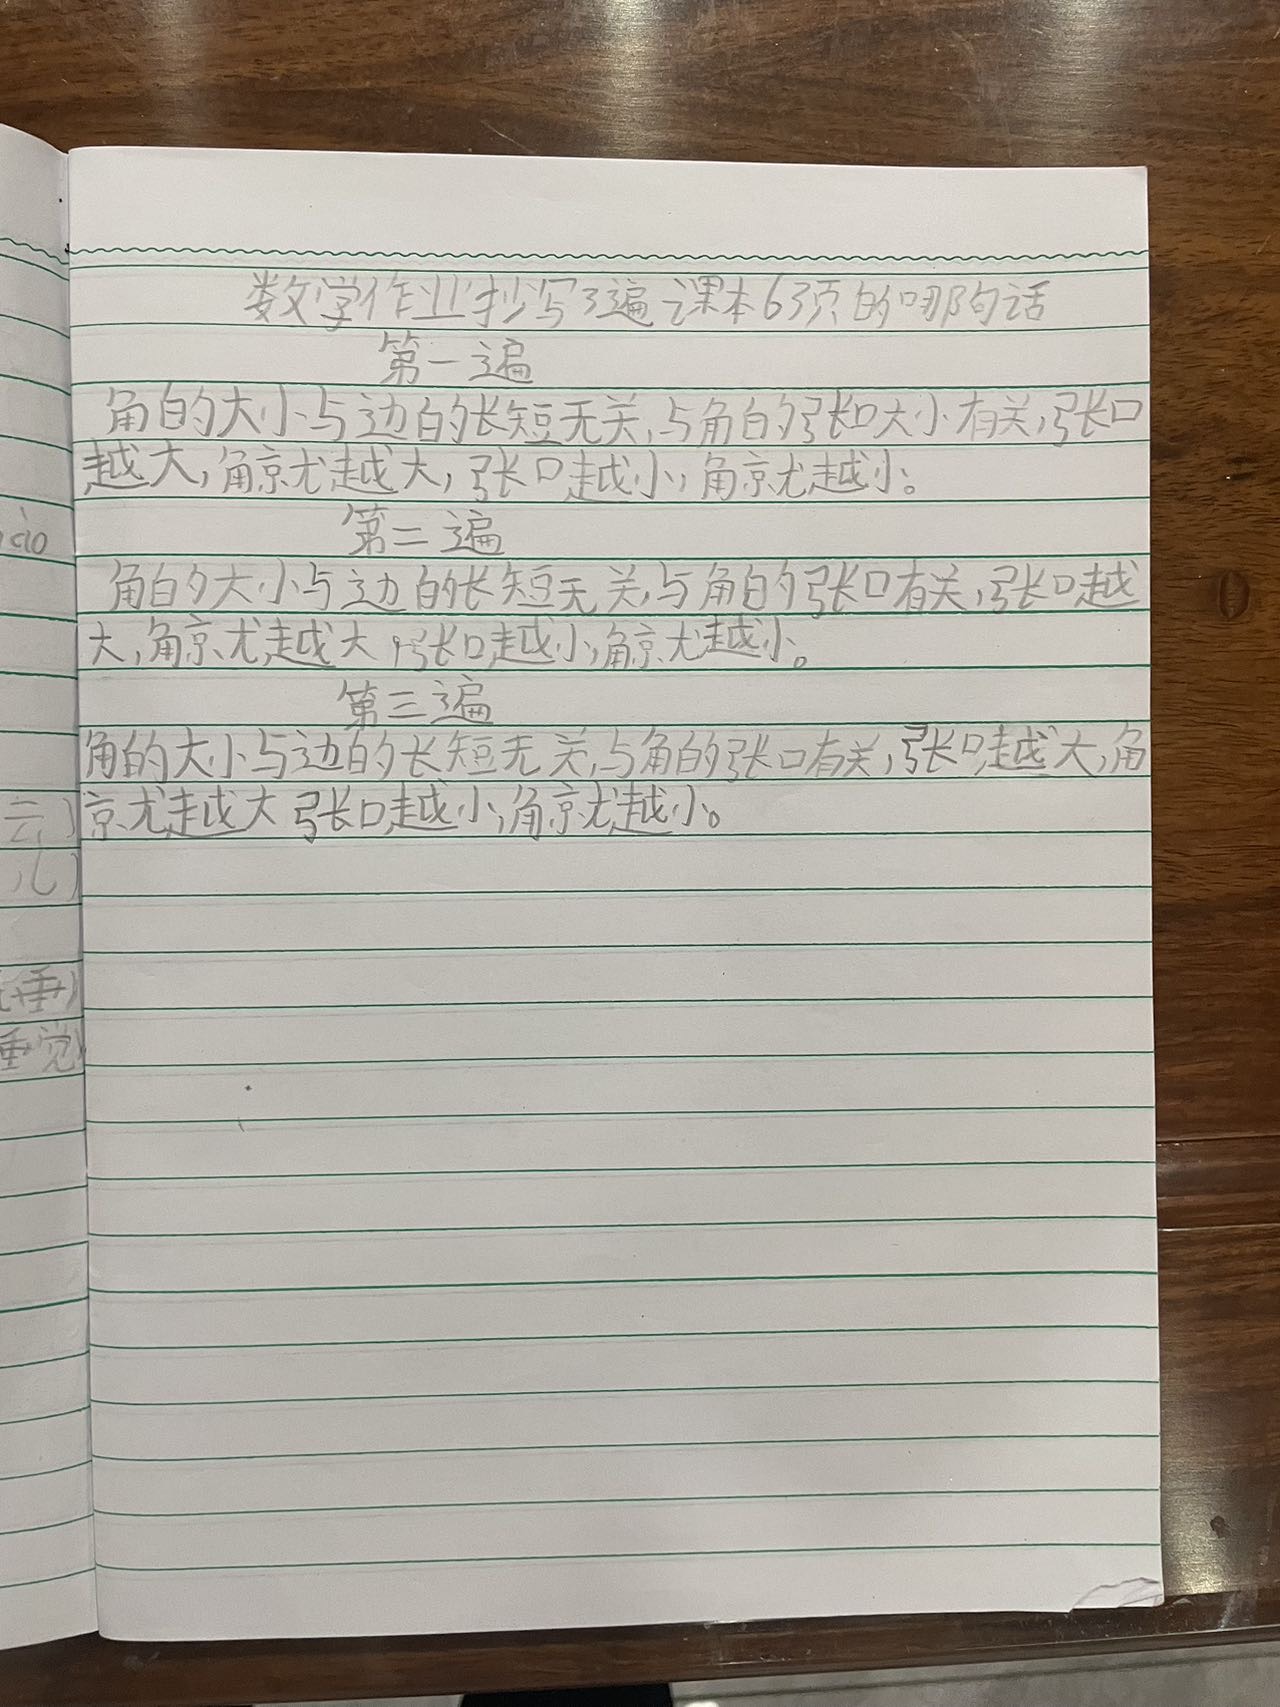 数学作业抄写3遍课本63页的哪句话
第一遍
角的大小与边的长短无关,与角的张口大小有关,张口
越大,角就越大,张口越小,角就越小。
第二遍
角的大小与边的长短无关,与角的张口有关,张口越
大,角就越大,张口越小,角就越小。
第三遍
角的大小与边的长短无关,与角的张口有关,张口越大,角
就越大 张口越小,角就越小。